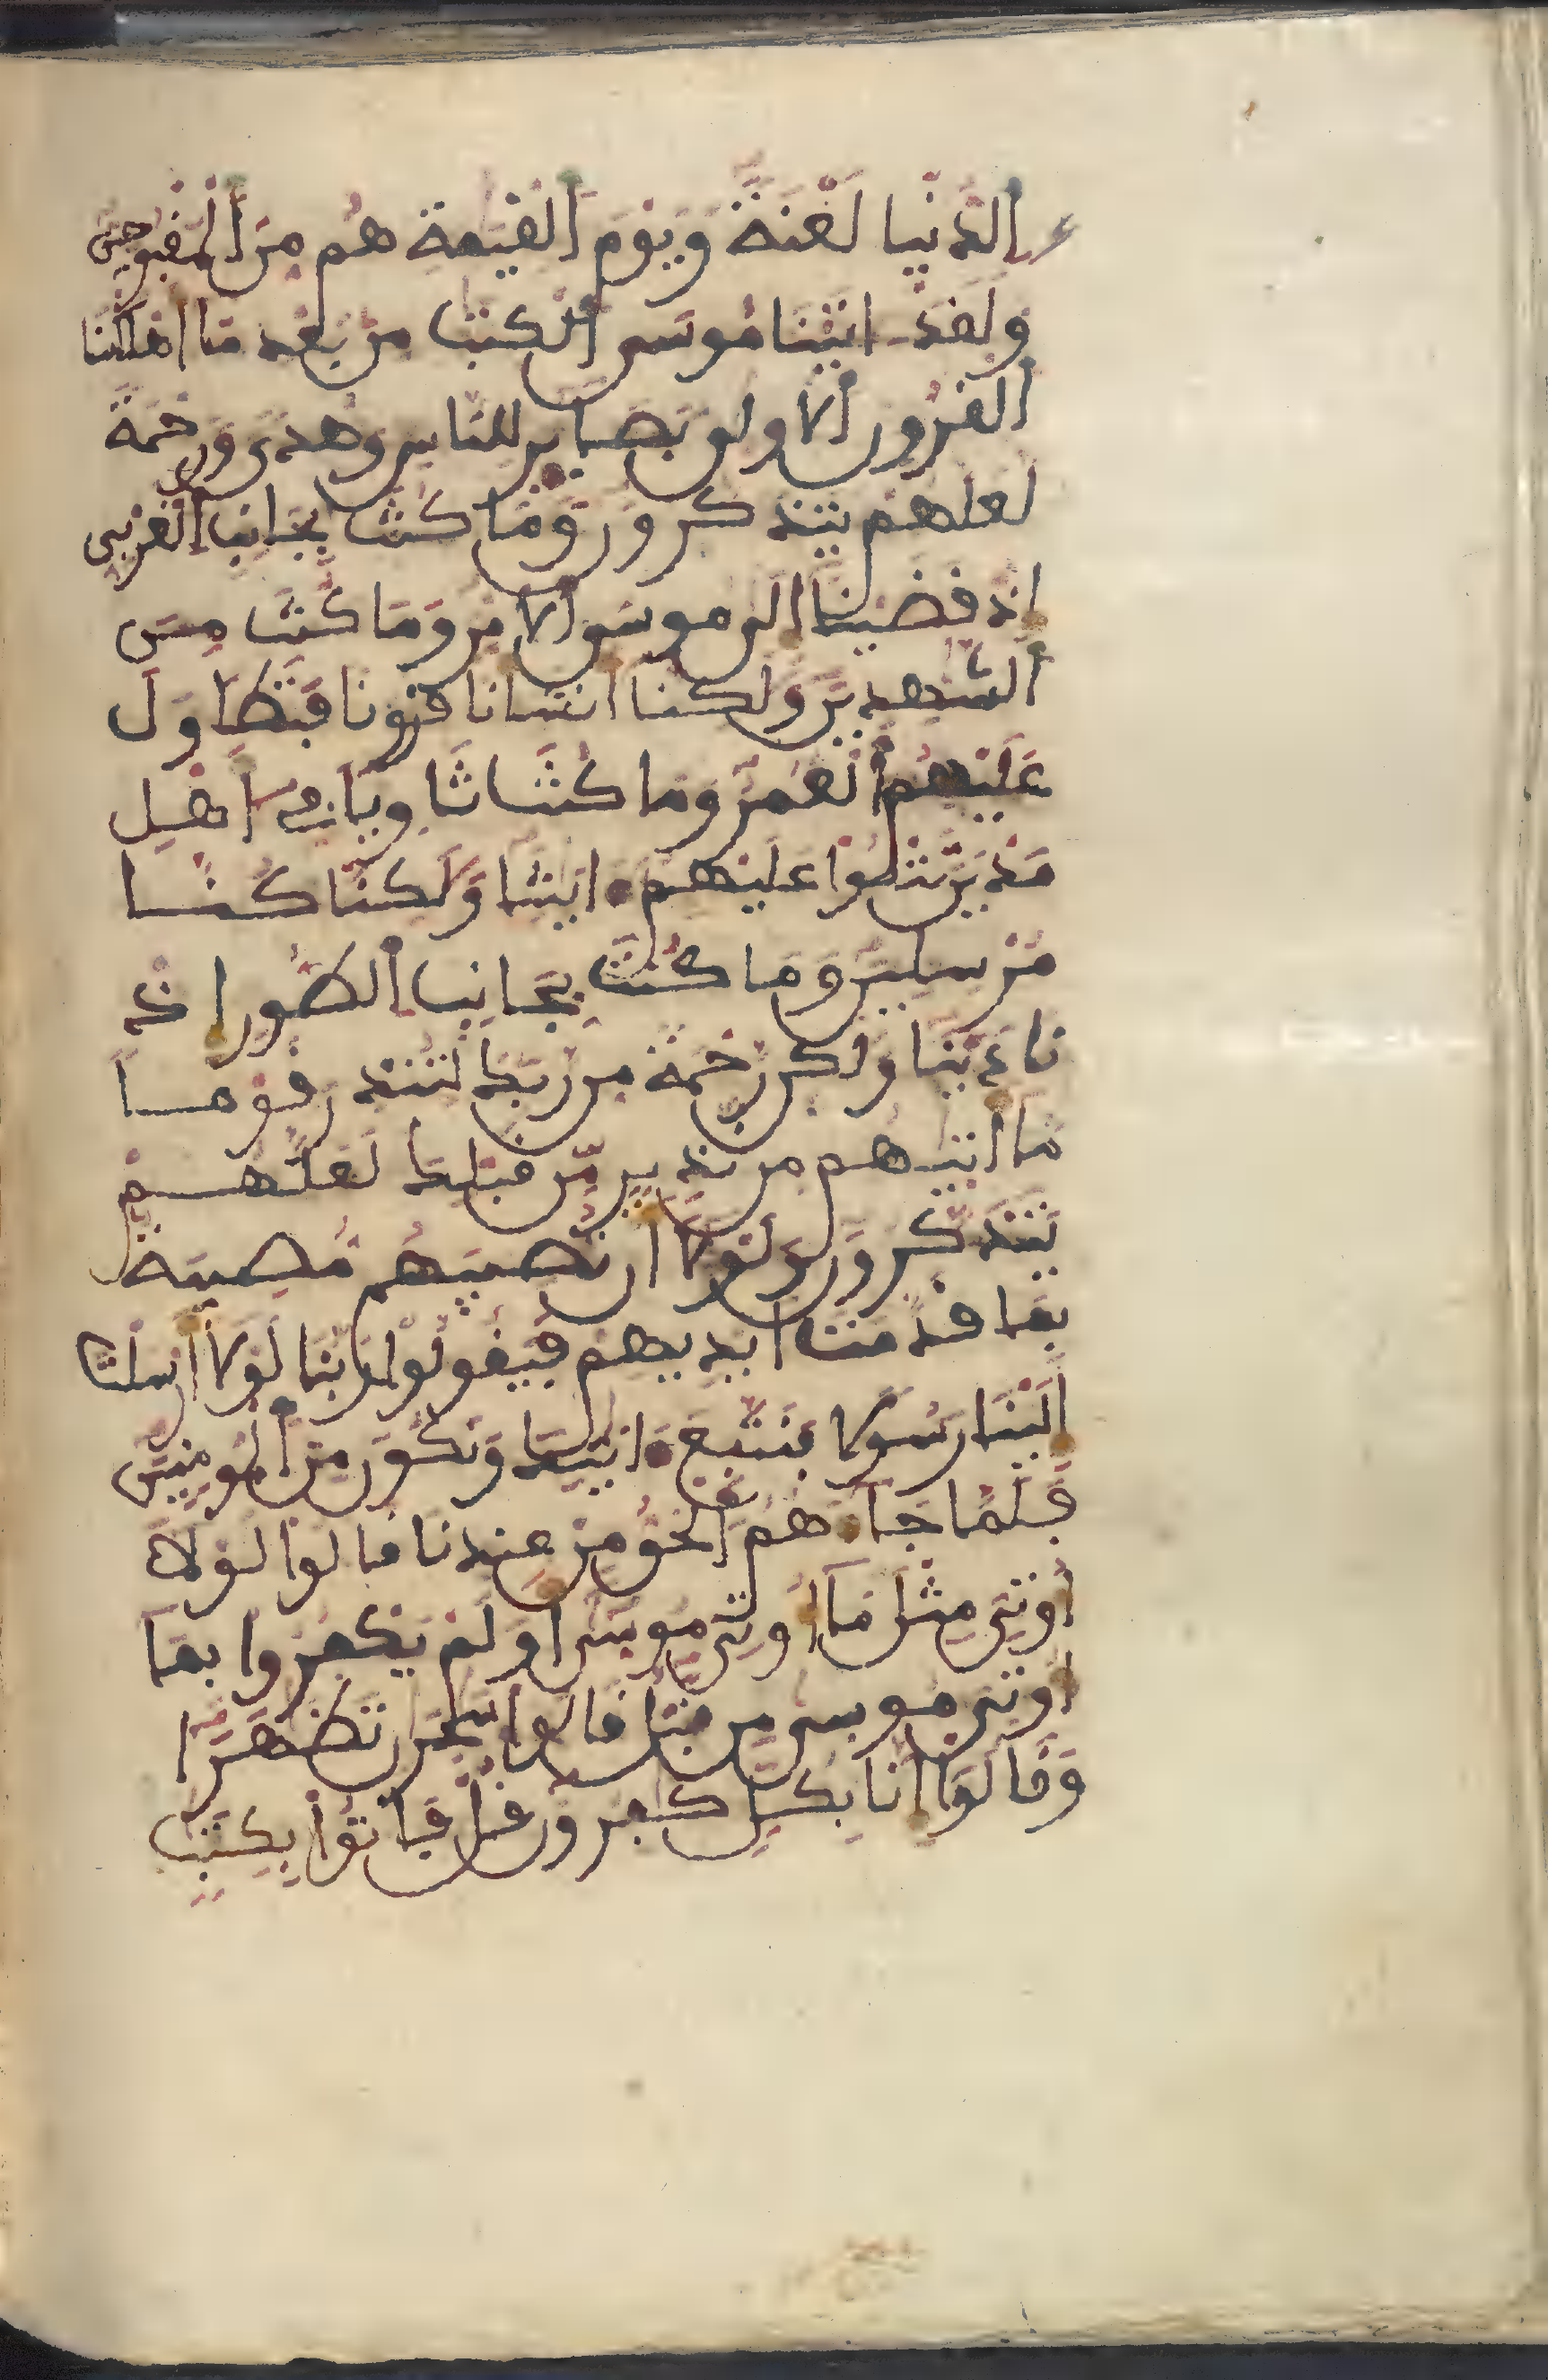 الدنيا لعنة ويوم القيمة هم من المقبوحين
ولقد اتينا موسى الكتب من بعد ما اهلكنا
القرون الاولى بصاير للناس وهدى ورحمة
لعلهم يتذكرون وما كنت بجانب الغربي
اذ قضينا الى موسى الامر وما كنت من
الشهدين ولكنا انشانا قرونا فتطاول
عليهم العمر وما كنت ثاويا في اهل
مدين تتلوا عليهم ءايتنا ولكنا كنا
مرسلين وما كنت بجانب الطور اذ
نادينا ولكن رحمة من ربك لتنذر قوما
ما اتيهم من نذير من قبلك لعلهم
يتذكرون ولولا ان تصيبهم مصيبة
بما قدمت ايديهم فيقولوا ربنا لولا ارسلت
الينا رسولا فنتبع ءايتك ونكون من المومنين
فلما جاءهم الحق من عندنا قالوا لولا
اوتي مثل ما اوتي موسى اولم يكفروا بما
اوتي موسى من قبل قالوا سحرن تظهرا
وقالوا انا بكل كفرون قل فاتوا بكتب